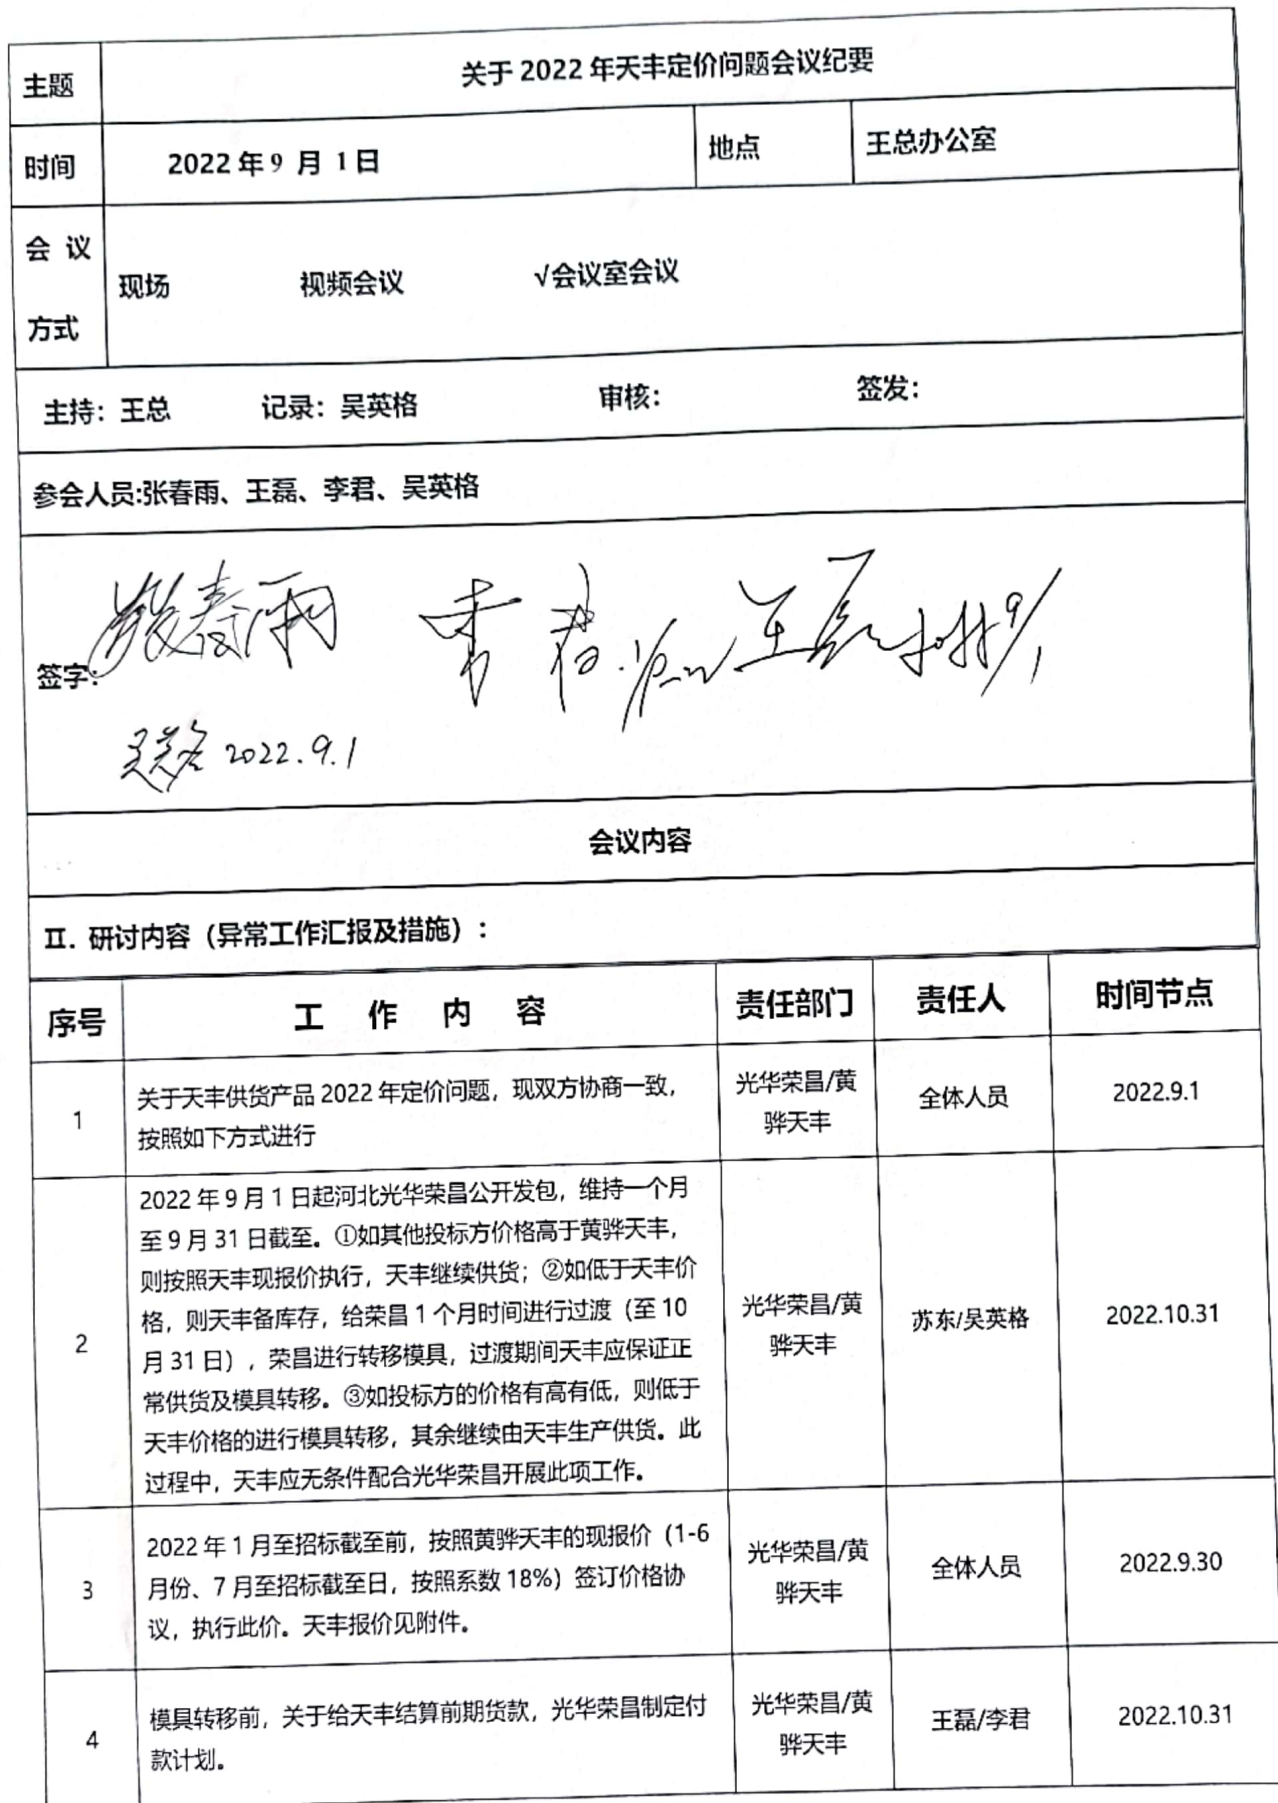 主题 关于2022年天丰定价问题会议纪要
时间 2022年9月1日 地点 王总办公室
会议
方式
现场 视频会议 √会议室会议
主持：王总 记录：吴英格 审核： 签发：
参会人员:张春雨、王磊、李君、吴英格
签字：
张春雨 李君 王磊
吴英格 2022.9.1
会议内容
II. 研讨内容（异常工作汇报及措施）：
序号 工作内容 责任部门 责任人 时间节点
1
关于天丰供货产品2022年定价问题，现双方协商一致，
按照如下方式进行
光华荣昌/黄
骅天丰
全体人员
2022.9.1
2
2022年9月1日起河北光华荣昌公开发包，维持一个月
至9月31日截至。①如其他投标方价格高于黄骅天丰，
则按照天丰现报价执行，天丰继续供货；②如低于天丰价
格，则天丰备库存，给荣昌1个月时间进行过渡（至10
月31日），荣昌进行转移模具，过渡期间天丰应保证正
常供货及模具转移。③如投标方的价格有高有低，则低于
天丰价格的进行模具转移，其余继续由天丰生产供货。此
过程中，天丰应无条件配合光华荣昌开展此项工作。
光华荣昌/黄
骅天丰
苏东/吴英格
2022.10.31
3
2022年1月至招标截至前，按照黄骅天丰的现报价（1-6
月份、7月至招标截至日，按照系数18%）签订价格协
议，执行此价。天丰报价见附件。
光华荣昌/黄
骅天丰
全体人员
2022.9.30
4
模具转移前，关于给天丰结算前期货款，光华荣昌制定付
款计划。
光华荣昌/黄
骅天丰
王磊/李君
2022.10.31